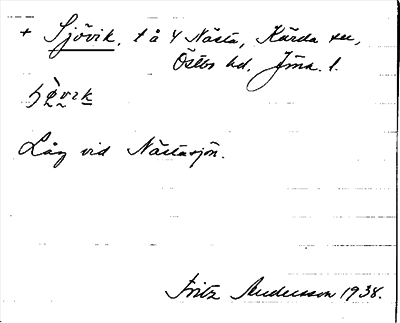 + Sjövik, t å 4 Nästa, Kärda sn,
Östbo hd, Jmk. l.
Låg vid Nästasjön.
Fritz Andersson 1938.